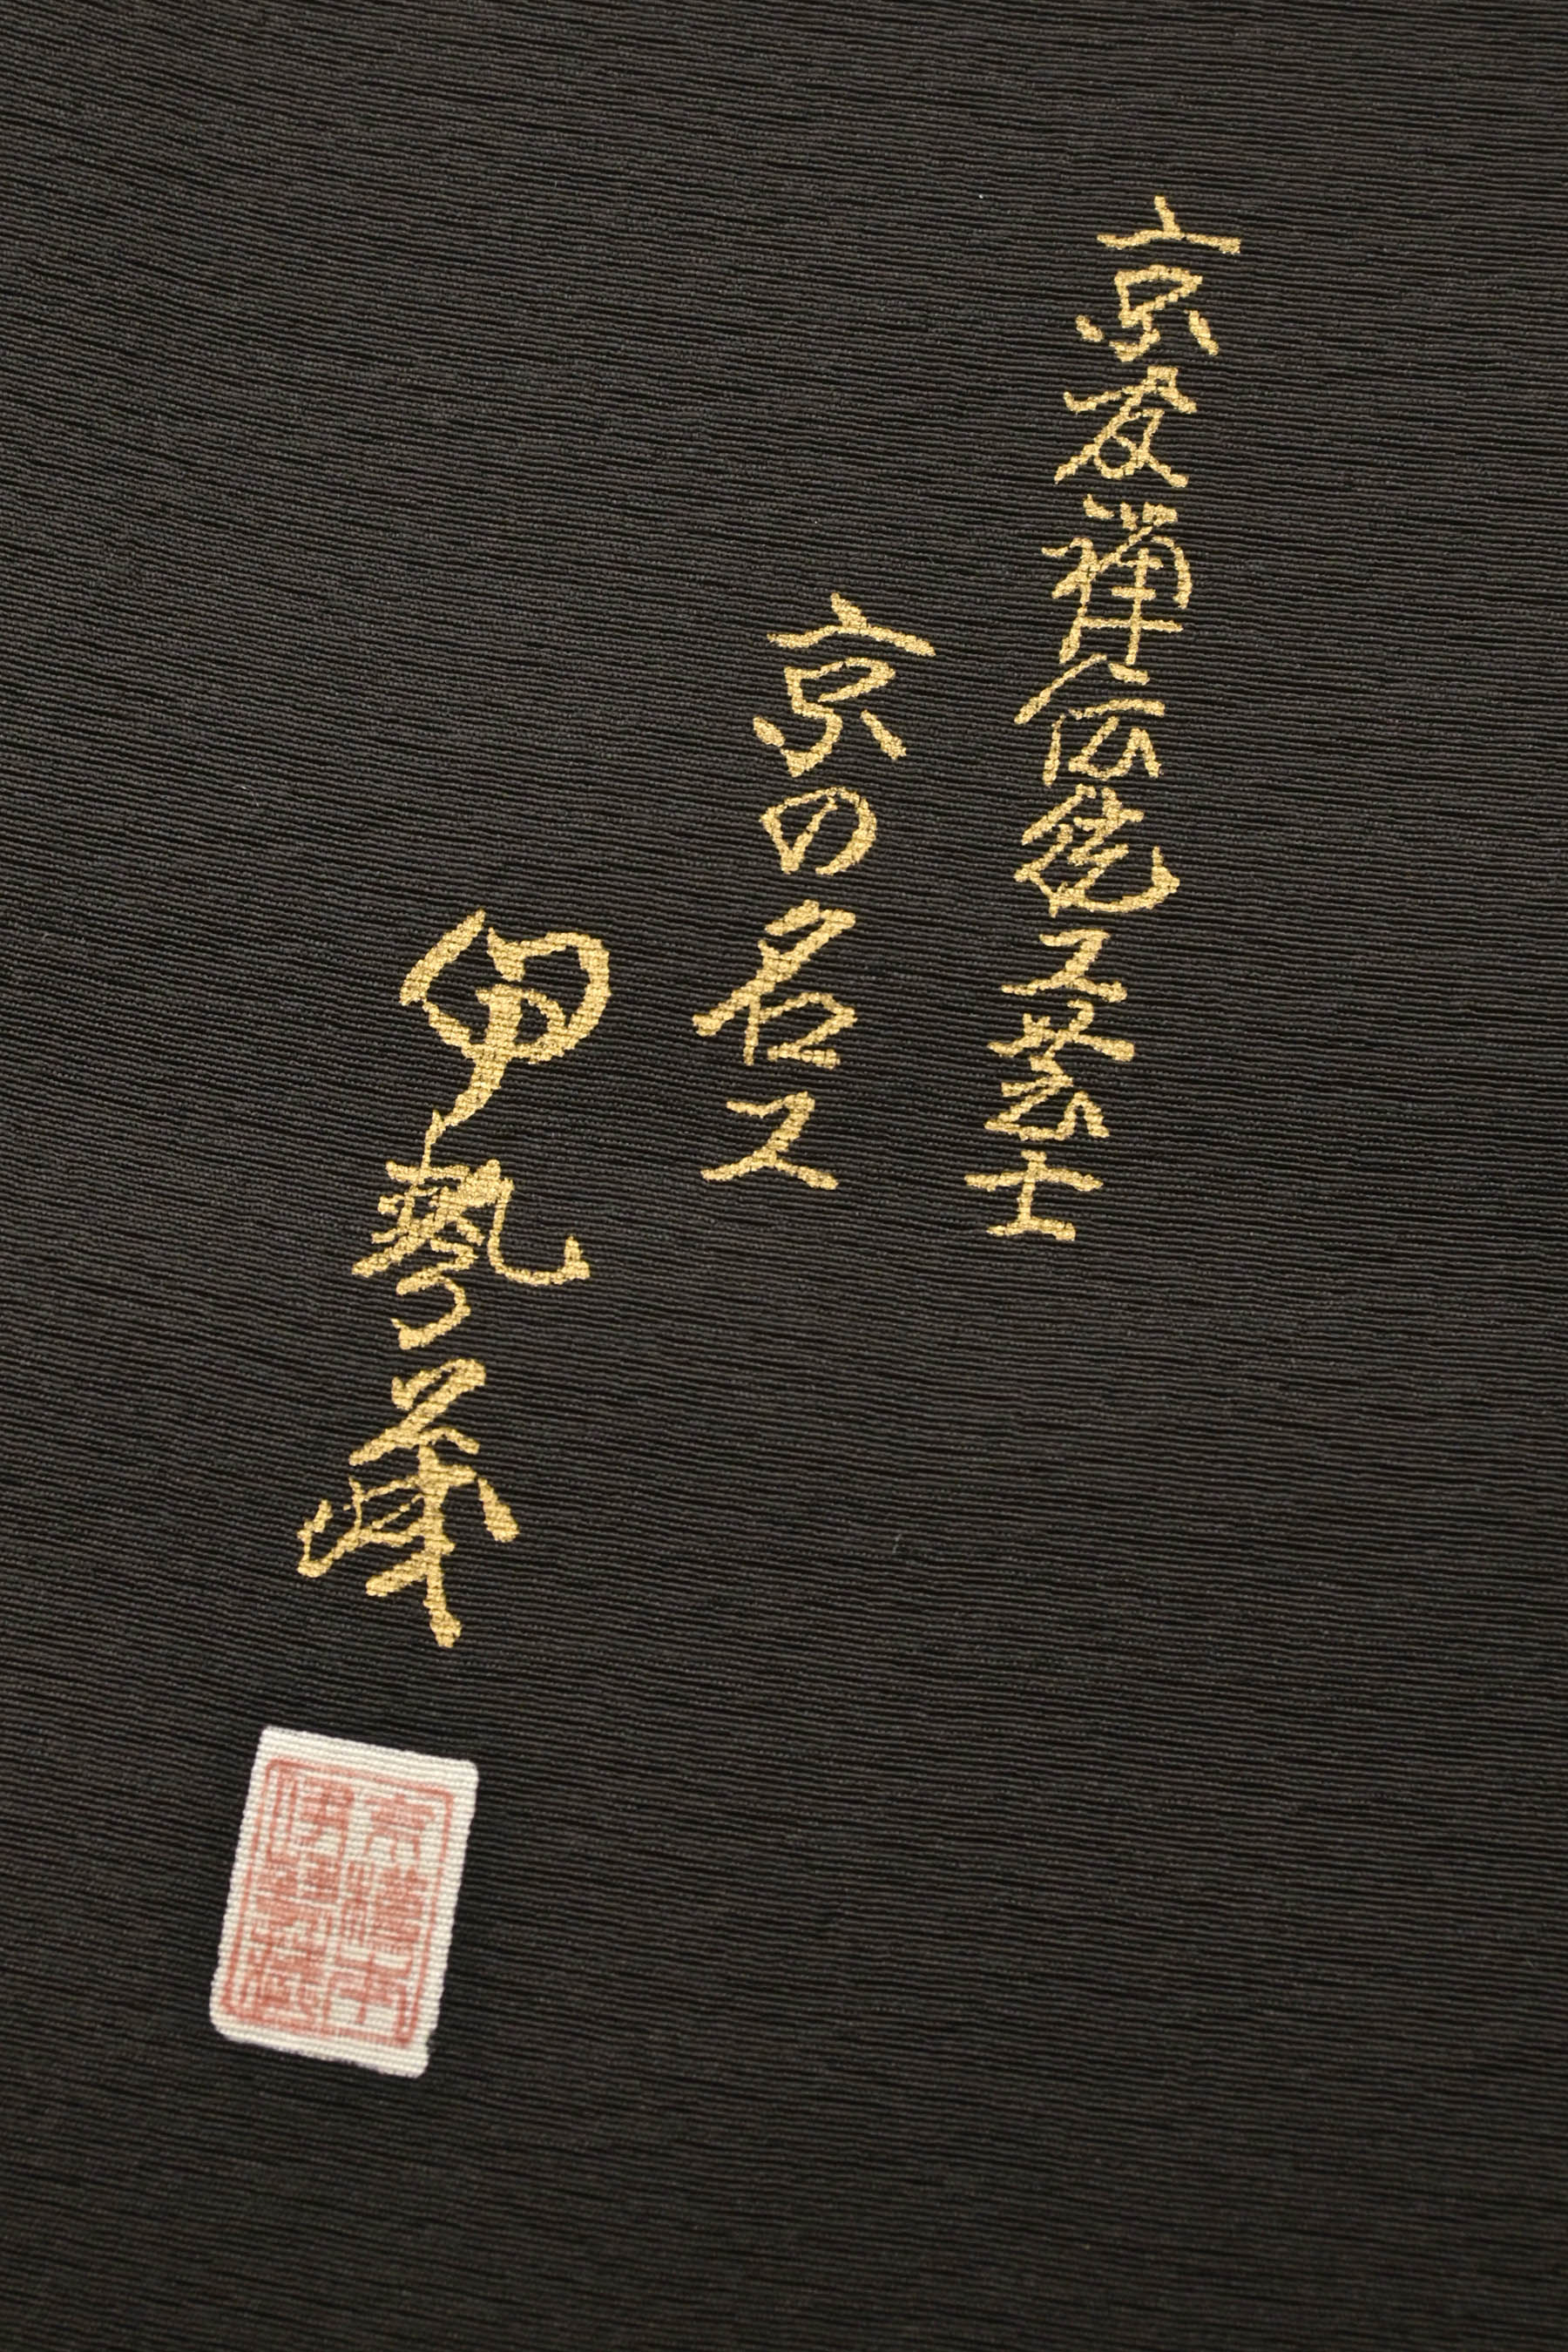 京友禅伝統工芸士
京の名工
伊勢